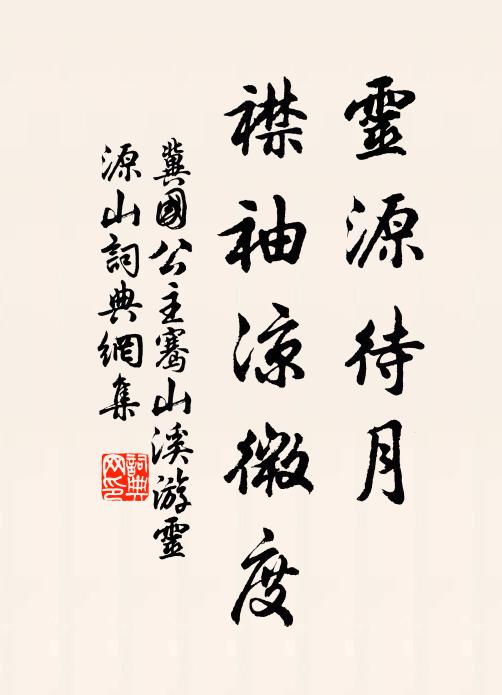 靈源待月
襟袖涼微度
冀國公主騫山溪游靈
源山詞典網集
詞典網印